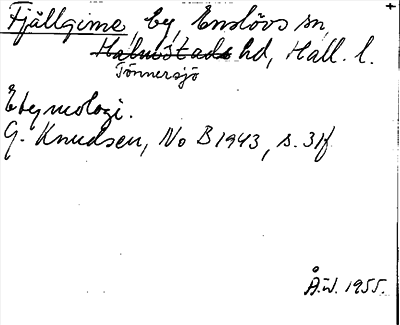 Fjällgime, by, Enslövs sn,
Halmstads hd, Hall. l.
Tönnersjö
Etymologi.
G. Knudsen, No B 1943, s. 31f
Å.W. 1955.